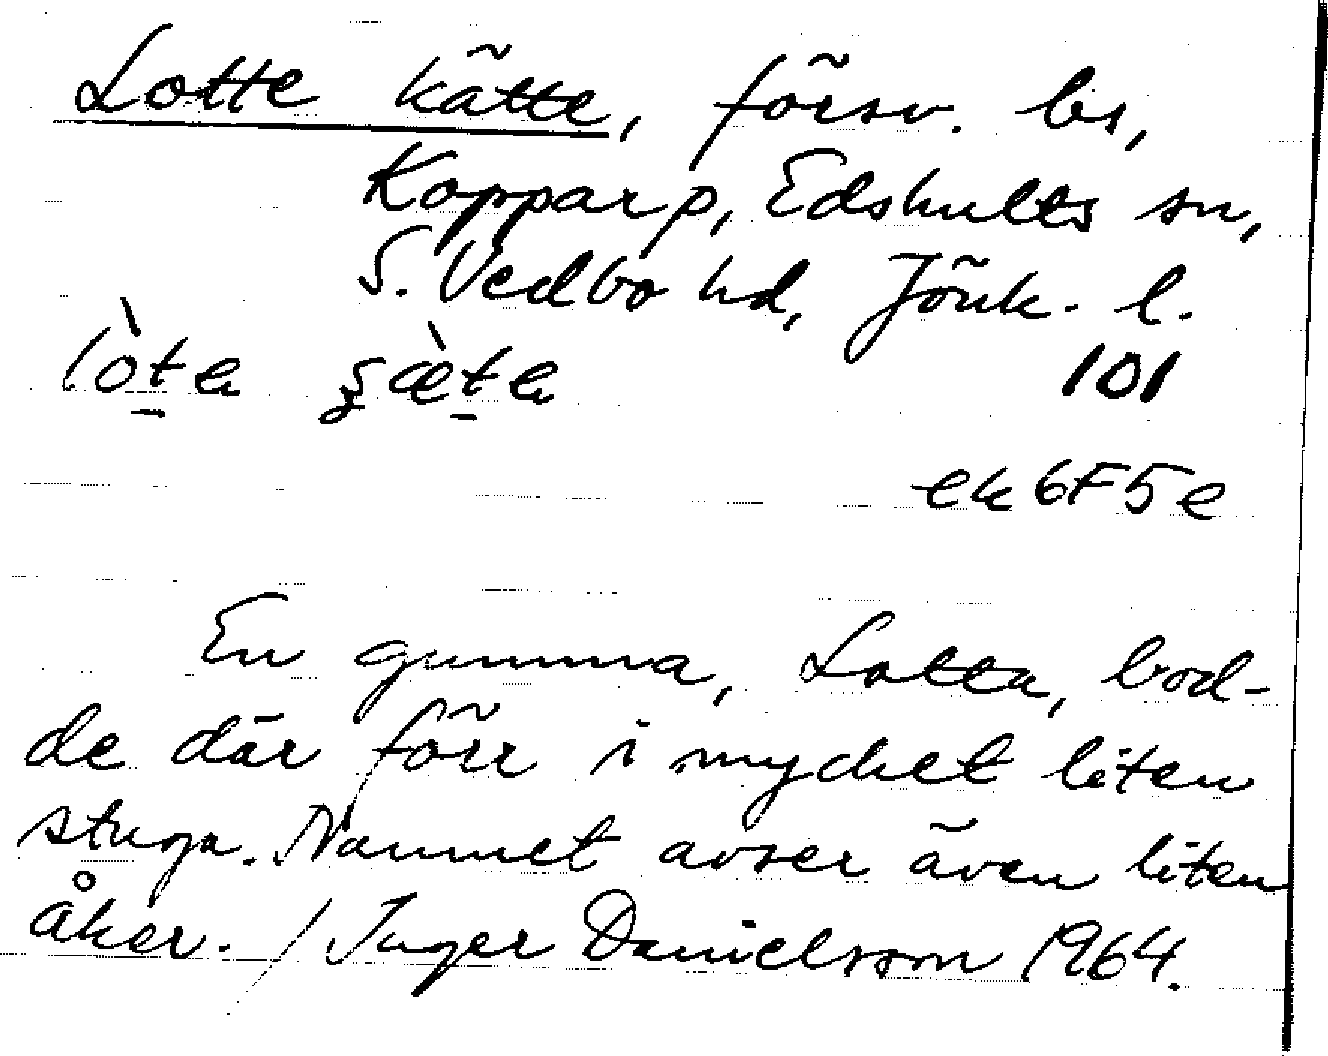 Lotte kätte, försv. bs,
Kopparp, Edshults sn,
S. Vedbo hd, Jönk. l.
lòṯa ʂæ̀ṯa 101
ek 6F5e
En gumma, Lotta, bod-
de där förr i mycket liten
stuga. Namnet avser även liten
åker. / Inger Danielsson 1964.